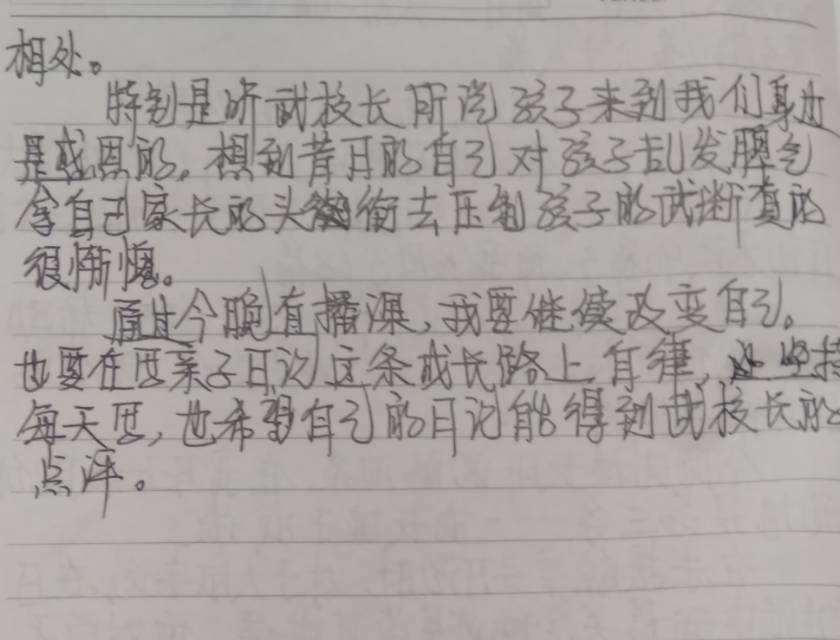 相处。
特别是听武校长所说孩子来到我们身边
是感恩的,想到昔日的自己对孩子乱发脾气
拿自己家长的头衔去压制孩子的武断真的
很惭愧。
通过今晚直播课,我要继续改变自己。
也要在写亲子日记这条成长路上自律,坚持
每天写,也希望自己的日记能得到武校长的
点评。